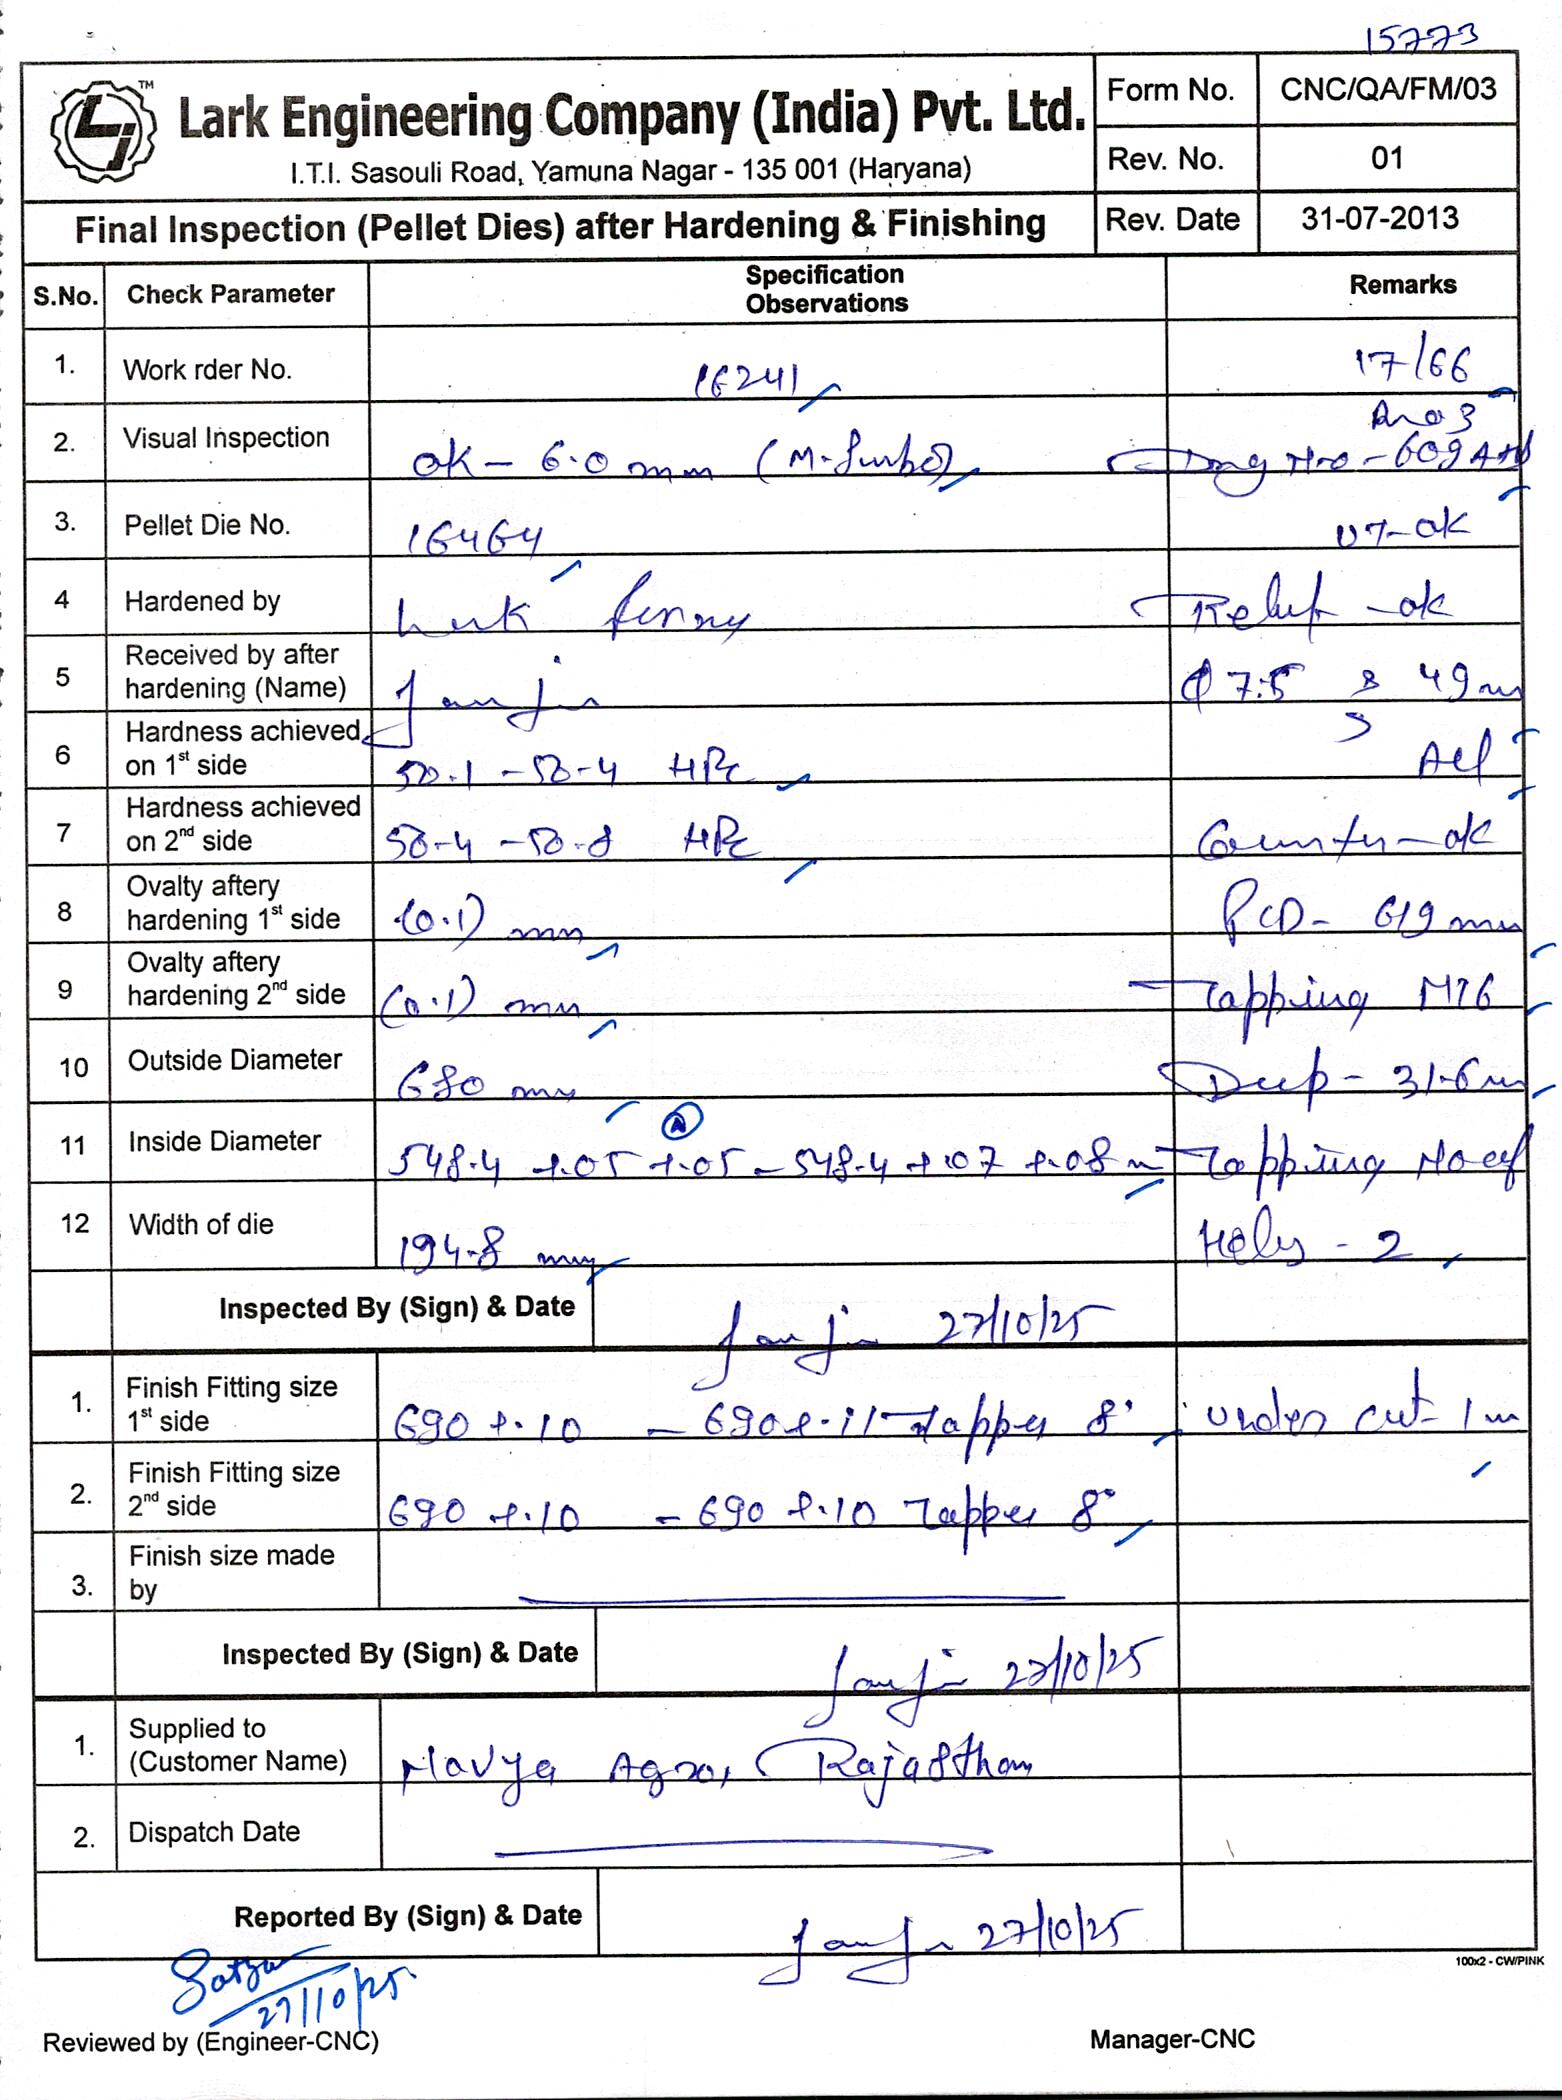 15773
Lark Engineering Company (India) Pvt. Ltd.
TM
I.T.I. Sasouli Road, Yamuna Nagar - 135 001 (Haryana)
Form No. CNC/QA/FM/03
Rev. No. 01
Final Inspection (Pellet Dies) after Hardening & Finishing
Rev. Date 31-07-2013
S.No. Check Parameter Specification Observations Remarks
1. Work rder No. 16241 17/66
2. Visual Inspection OK - 6.0 mm Drg No - 609
3. Pellet Die No. 16464 U7-OK
4 Hardened by Relief - OK
5 Received by after hardening (Name) φ 7.5 49 mm
6 Hardness achieved on 1st side 50.1 - 50.4 HRc
7 Hardness achieved on 2nd side 50.4 - 50.8 HRc Counter - OK
8 Ovalty aftery hardening 1st side (0.1) mm PCD - 619 mm
9 Ovalty aftery hardening 2nd side (0.1) mm Tapping M16
10 Outside Diameter 680 mm Deep - 31.6 m
11 Inside Diameter 548.4 +.05 +.05 - 548.4 +.07 +.08 m Tapping No of
12 Width of die 194.8 mm Holes - 2
Inspected By (Sign) & Date 27/10/25
1. Finish Fitting size 1st side 690 +.10 - 690 +.11 Tapper 8° Under cut - 1 m
2. Finish Fitting size 2nd side 690 +.10 - 690 +.10 Tapper 8°
3. Finish size made by
Inspected By (Sign) & Date 27/10/25
1. Supplied to (Customer Name) Navya Agro, Rajasthan
2. Dispatch Date
Reported By (Sign) & Date 27/10/25
100x2 - CW/PINK
27/10/25
Reviewed by (Engineer-CNC) Manager-CNC